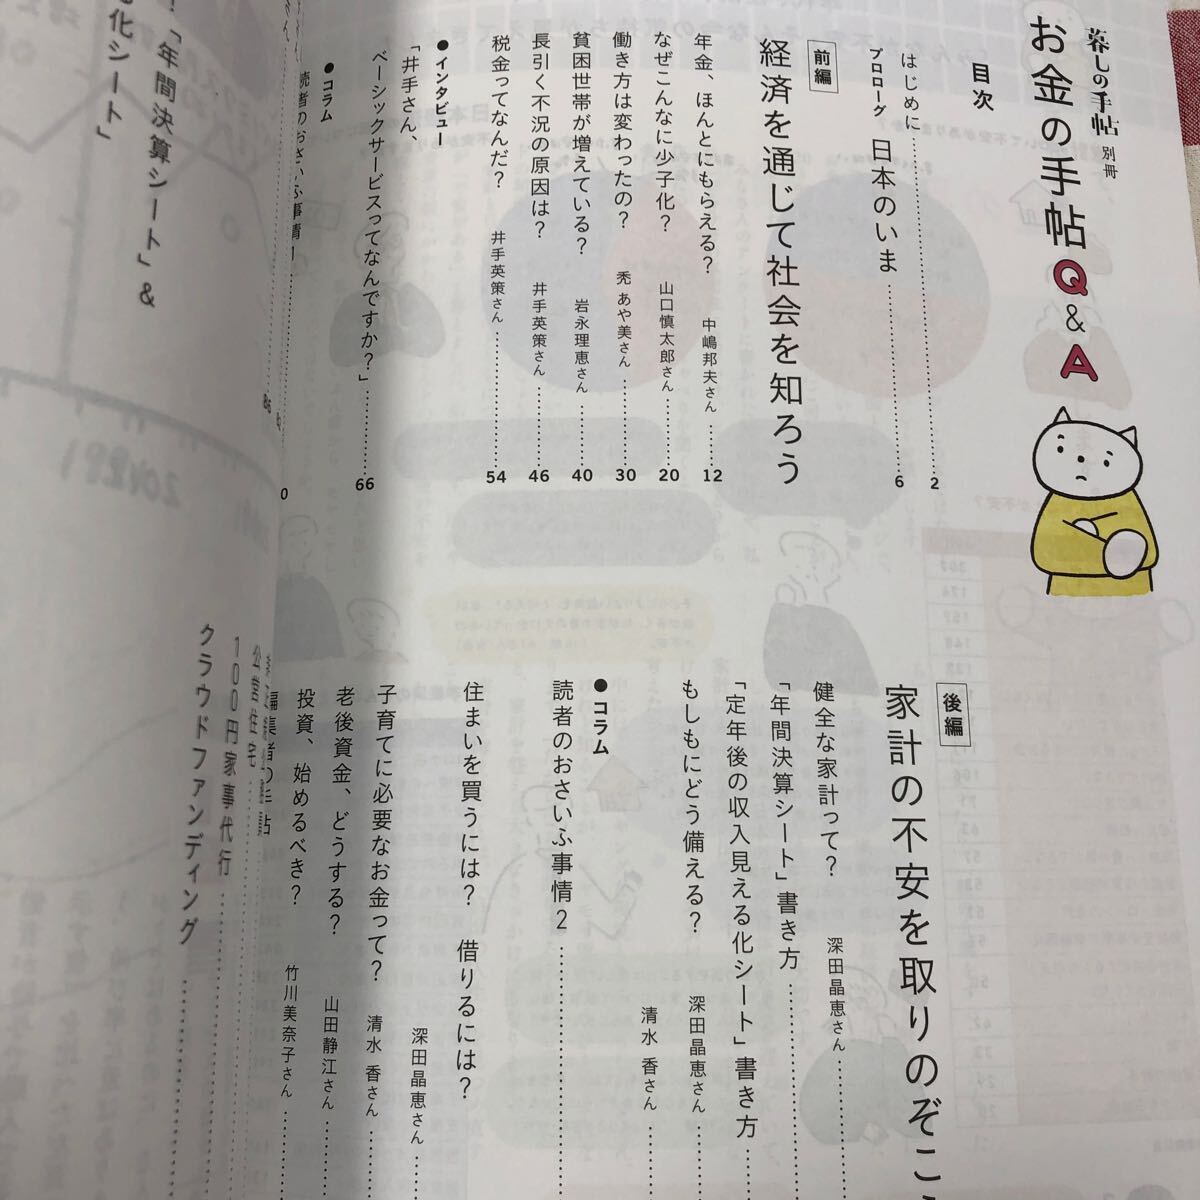 暮しの手帖 別冊
お金の手帖Q&A
目次
はじめに……2
プロローグ 日本のいま……6
前編
経済を通じて社会を知ろう
年金、ほんとにもらえる? 中嶋邦夫さん……12
なぜこんなに少子化? 山口慎太郎さん……20
働き方は変わったの? 禿 あや美さん……30
貧困世帯が増えている? 岩永理恵さん……40
長引く不況の原因は? 井手英策さん……46
税金ってなんだ? 井手英策さん……54
●インタビュー
「井手さん、
ベーシックサービスってなんですか?」……66
●コラム
読者のおさいふ事情1
後編
家計の不安を取りのぞこ
健全な家計って? 深田晶恵さん……
「年間決算シート」書き方……
「定年後の収入見える化シート」書き方……
もしもにどう備える? 深田晶恵さん……
清水 香さん……
●コラム
読者のおさいふ事情2……
住まいを買うには? 借りるには?
深田晶恵さん……
子育てに必要なお金って? 清水 香さん……
老後資金、どうする? 山田静江さん……
投資、始めるべき? 竹川美奈子さん……
編集者の手帖
公営住宅……
100円家事代行……
クラウドファンディング……
「年間決算シート」&
化シート」